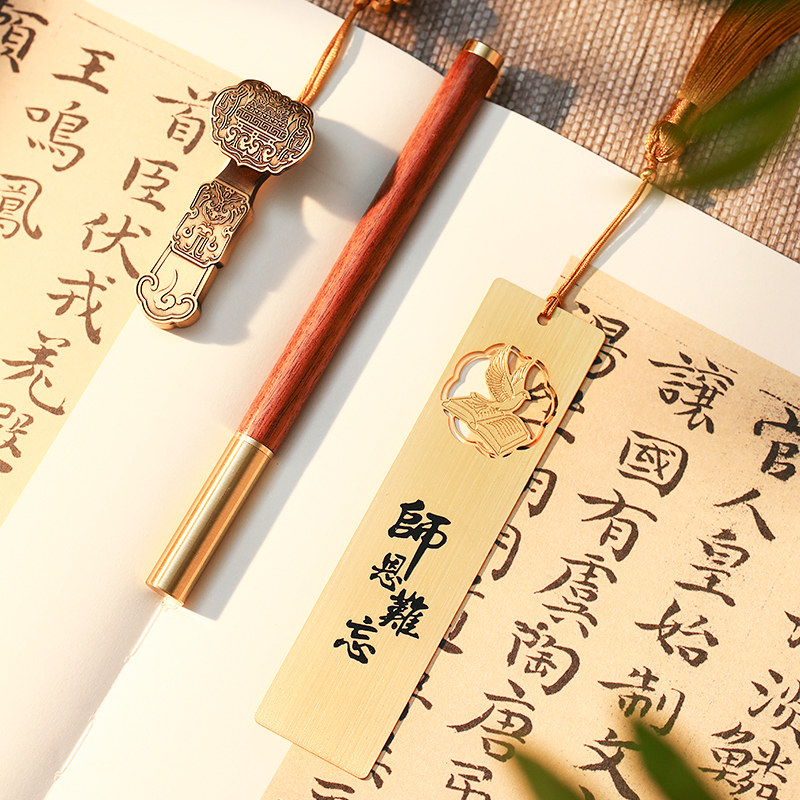 師恩難忘
首臣伏戎羌
王鳴鳳
淡鱗
官人皇始制文
讓國有虞陶唐弔
湯